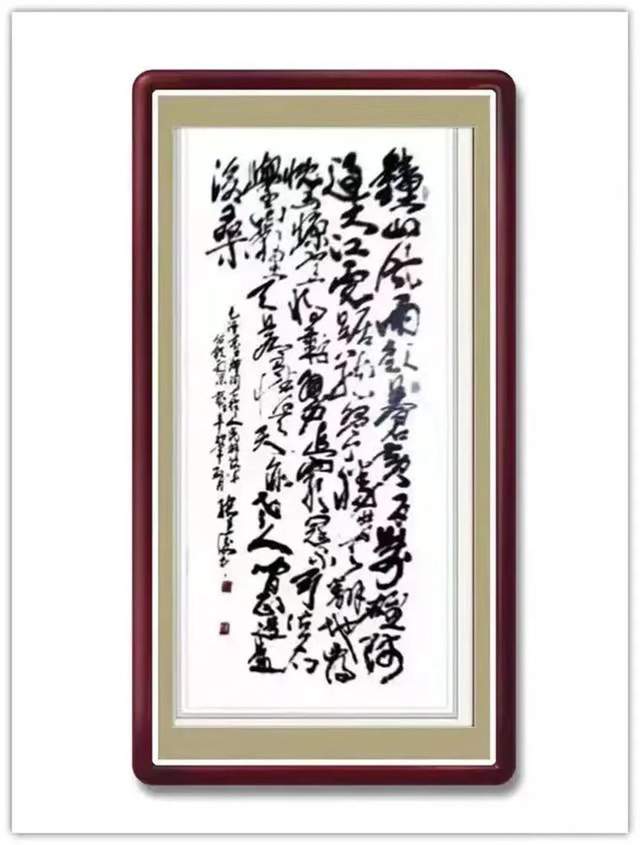 鐘山風雨起蒼黃百萬雄師
過大江虎踞龍盤今勝昔天翻地覆
慨而慷宜將剩勇追窮寇不可沽名
學霸王天若有情天亦老人間正道是
滄桑
毛澤東人民解放軍
佔領南京